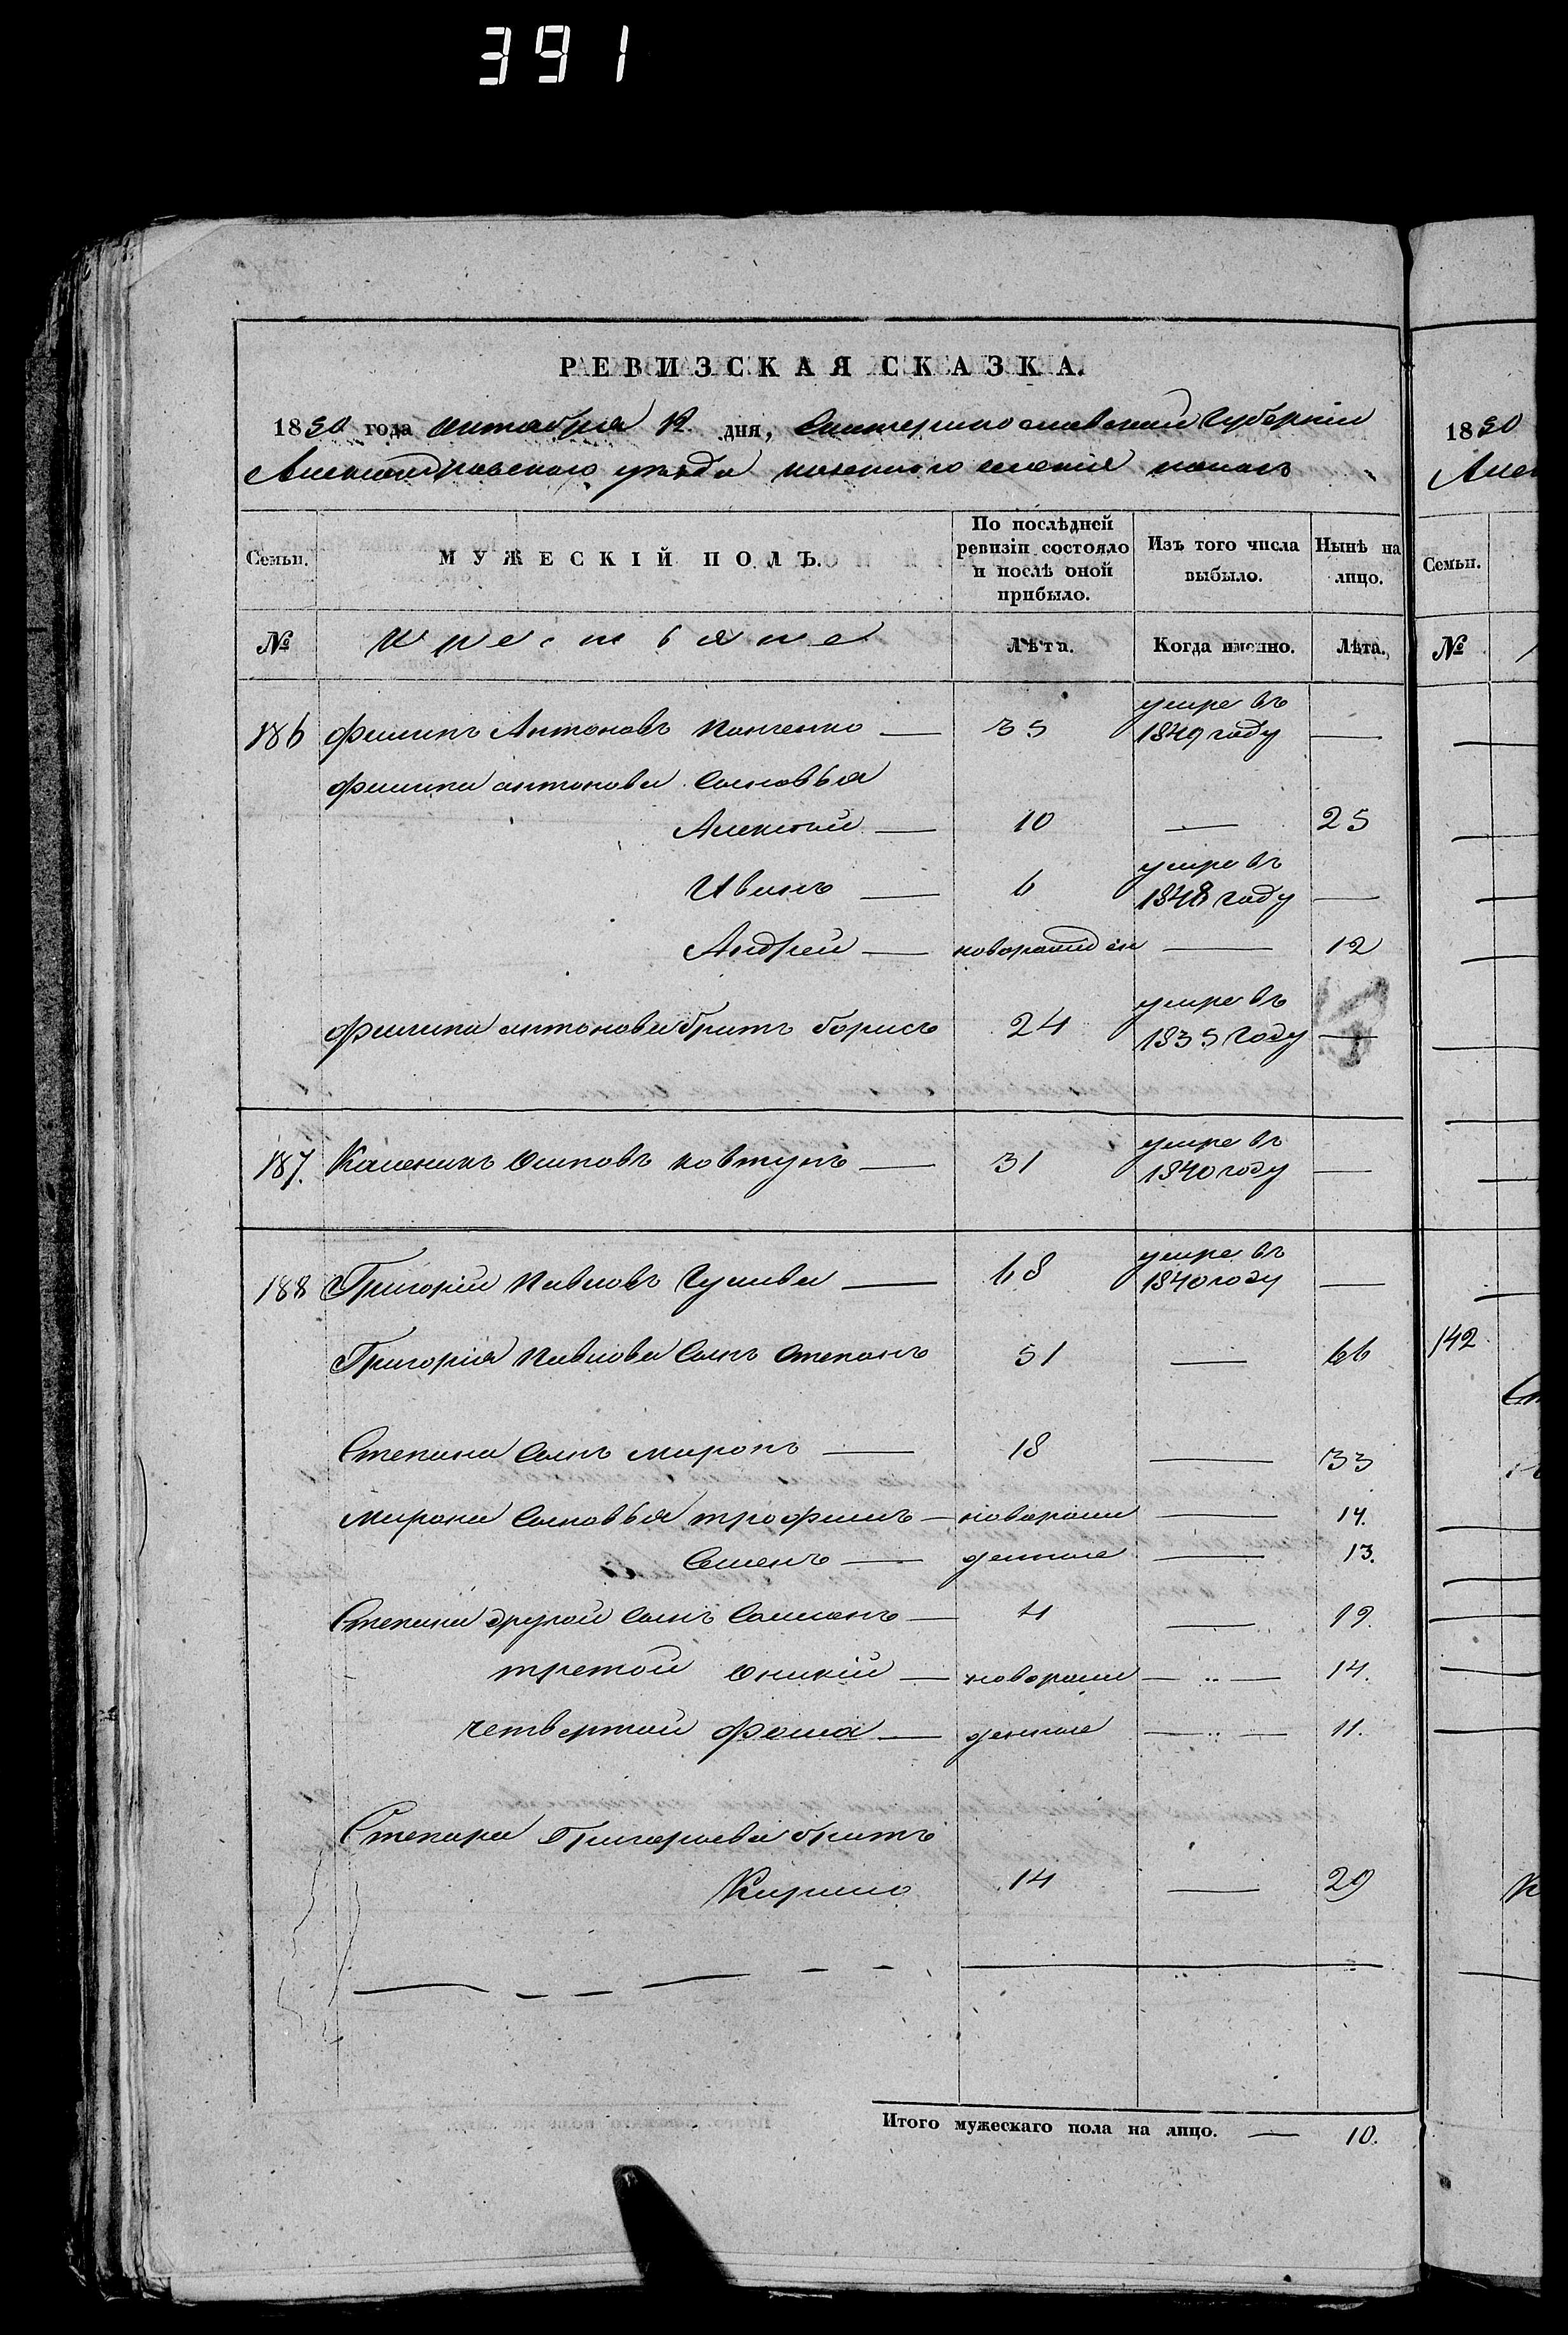 391
РЕВИЗСКАЯ СКАЗКА.
1850 года Октабря 12 дня, Екатеринославской Губерніи
Александровского уезда казенного селенія
Семьи. МУЖЕСКІЙ ПОЛЪ. По послѣдней ревизіи состояло и послѣ оной прибыло. Изъ того числа выбыло. Нынѣ на лицо.
№ Крестьяне Лѣта. Когда именно. Лѣта.
186 Филипъ Антоновъ Панченко — 35 умре въ 1849 году —
Филипа антонова Сыновья
Алексей — 10 — 25
Иванъ — 6 умре въ 1848 году —
Андрей — новорожден — 12
Филипа антонова братъ борисъ 24 умре въ 1835 году —
187. Каленикъ Осиповъ ковтунъ — 31 умре въ 1840 году —
188 Григорій Павловъ — 68 умре въ 1840 году —
Григорія Павлова Сынъ Степанъ 51 — 66
Степана Сынъ миронъ — 18 — 33
Мирона Сыновья трофимъ — новорож — 14.
Семенъ — денные — 13.
Степана другой Сынъ — 4 — 19.
третой Оникій — новорож — 14.
четвертой Фома — денные — 11.
Степана Григорьева братъ
Кирило 14 — 29
Итого мужескаго пола на лицо. — 10.
1850
Алек
Семьи.
№
142